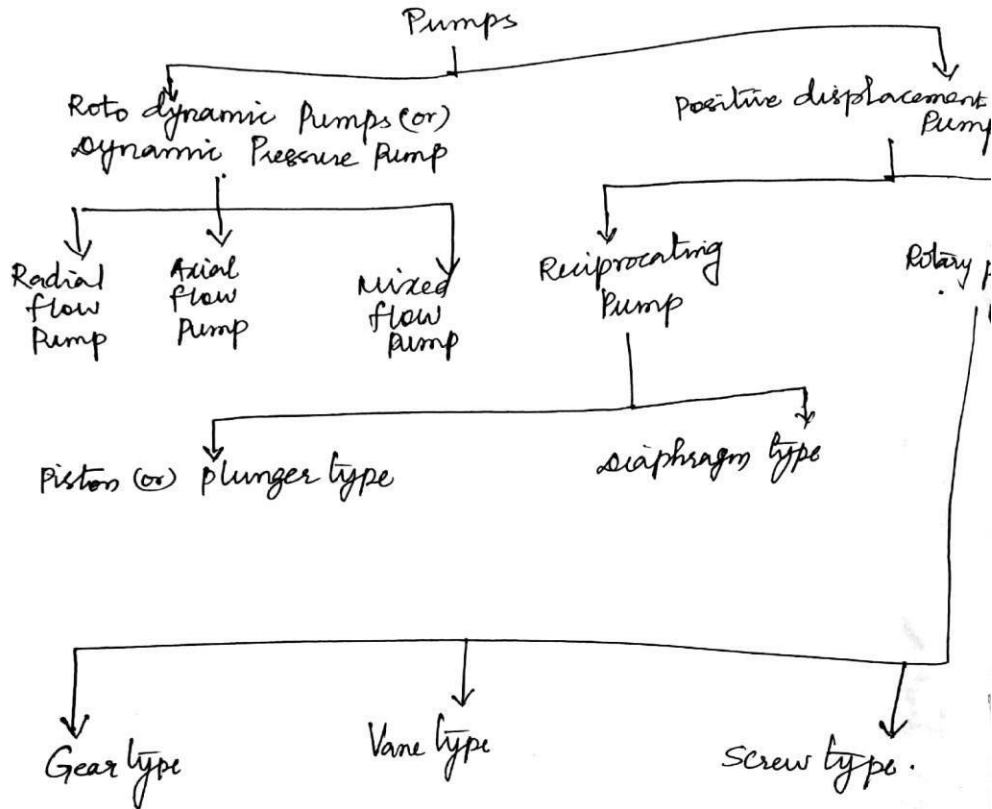 Pumps
Roto dynamic Pumps (or)
Dynamic Pressure Pump
Positive displacement
Pump
Radial
flow
Pump
Axial
flow
Pump
Mixed
flow
pump
Reciprocating
Pump
Rotary
Piston (or) Plunger type
Diaphragm type
Gear type
Vane type
Screw type.